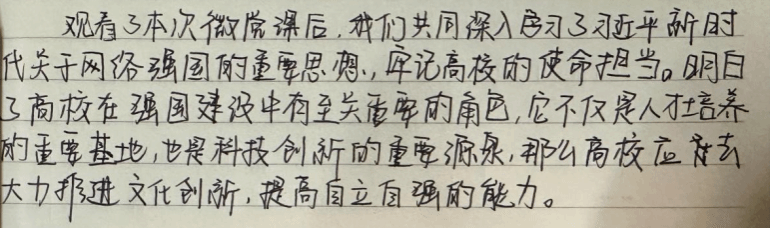 观看了本次微党课后，我们共同深入学习了习近平新时
代关于网络强国的重要思想，牢记高校的使命担当。明白
了高校在强国建设中有至关重要的角色，它不仅是人才培养
的重要基地，也是科技创新的重要源泉，那么高校应该去
大力推进文化创新，提高自立自强的能力。